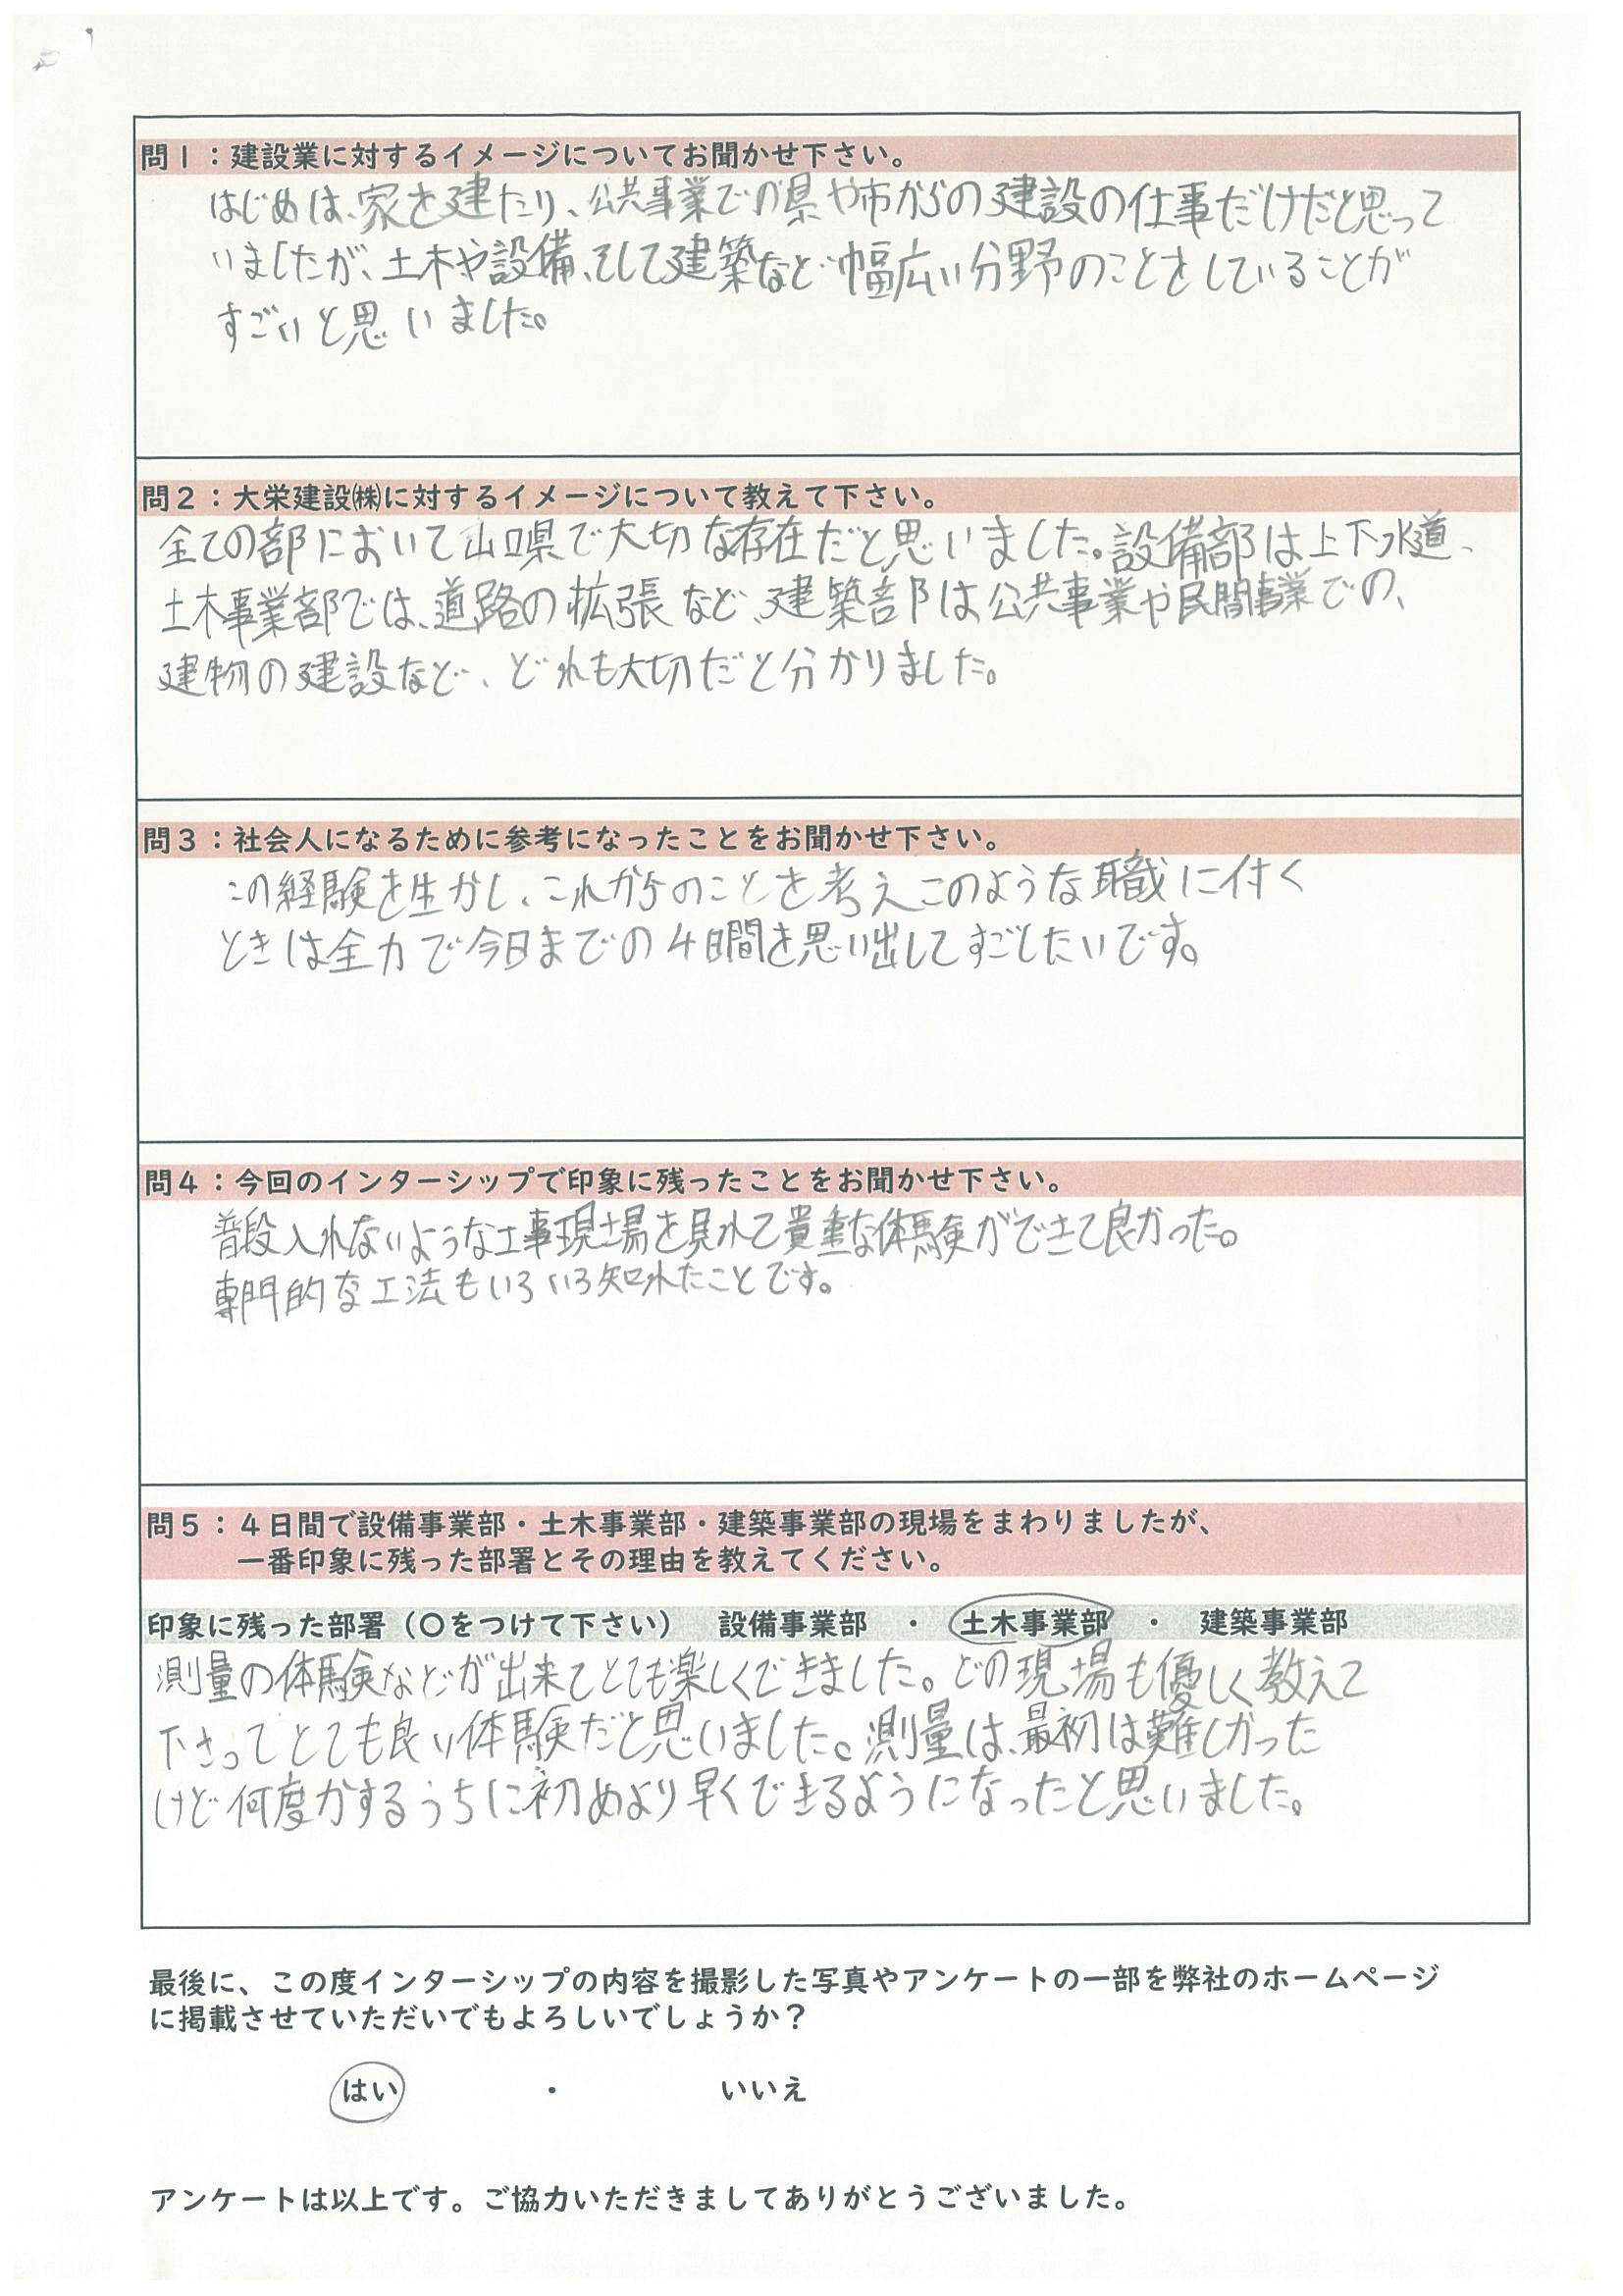 問1：建設業に対するイメージについてお聞かせ下さい。
はじめは、家を建たり、公共事業での県や市からの建設の仕事だけだと思って
いましたが、土木や設備、そして建築など幅広い分野のことをしていることが
すごいと思いました。
問2：大栄建設㈱に対するイメージについて教えて下さい。
全ての部において山口県で大切な存在だと思いました。設備部は上下水道、
土木事業部では、道路の拡張など、建築部は公共事業や民間事業での、
建物の建設など、どれも大切だと分かりました。
問3：社会人になるために参考になったことをお聞かせ下さい。
この経験を生かし、これからのことを考えこのような職に付く
ときは全力で今日までの4日間を思い出してすごしたいです。
問4：今回のインターシップで印象に残ったことをお聞かせ下さい。
普段入れないような工事現場を見れて貴重な体験ができて良かった。
専門的な工法もいろいろ知れたことです。
問5：4日間で設備事業部・土木事業部・建築事業部の現場をまわりましたが、
一番印象に残った部署とその理由を教えてください。
印象に残った部署（〇をつけて下さい） 設備事業部 ・ 土木事業部 ・ 建築事業部
測量の体験などが出来てとても楽しくできました。どの現場も優しく教えて
下さってとても良い体験だと思いました。測量は、最初は難しかった
けど何度かするうちに初めより早くできるようになったと思いました。
最後に、この度インターシップの内容を撮影した写真やアンケートの一部を弊社のホームページ
に掲載させていただいでもよろしいでしょうか？
はい ・ いいえ
アンケートは以上です。ご協力いただきましてありがとうございました。